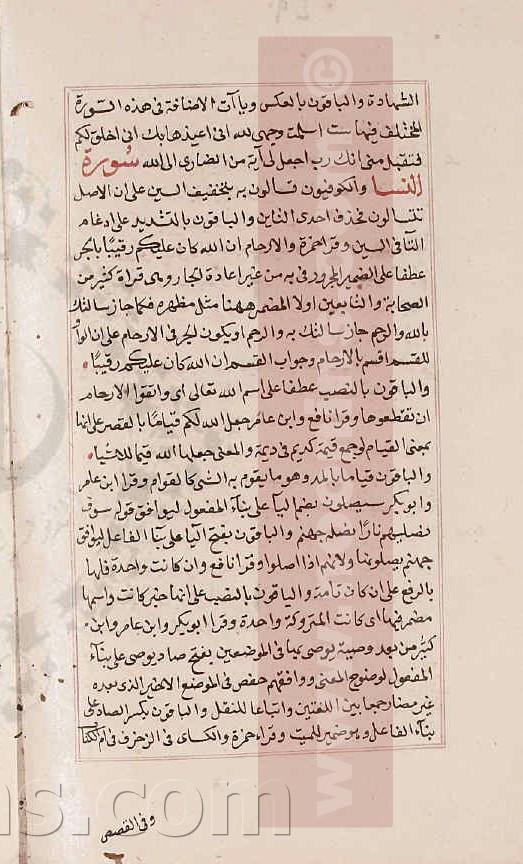 الشهادة والباقون بالعكس وياآت الاضافة فى هذه السورة
المختلف فيها ست اسلمت وجهى لله انى اعيذها بك انى اخلق لكم
فتقبل منى انك رب اجعل لى آية من انصارى الى الله سورة
النسا والكوفيون تسالون به بتخفيف السين على ان الاصل
تتسالون فحذف احدى التائين والباقون بالتشديد على ادغام
التا فى السين وقرا حمزة والارحام ان الله كان عليكم رقيبًا بالجر
عطفا على الضمير المجرور فى به من غير اعادة الجار وهى قراة كثير من
الصحابة والتابعين اولا المضمر ههنا مثل مظهره فكما جاز سالتك
بالله والرحم جاز سالتك به والرحم او يكون الجر فى الارحام على ان الواو
للقسم اقسم بالارحام وجواب القسم ان الله كان عليكم رقيبًا
والباقون بالنصب عطفا على اسم الله تعالى اى واتقوا الارحام
ان تقطعوها وقرا نافع وابن عامر جعل الله لكم قيامًا بالقصر على انها
بمعنى القيام او جمع قيمة كديم فى ديمة والمعنى جعلها الله قيما للاشياء
والباقون قياما بالمد وهو ما يقوم به الشى كالقوام وقرا ابن عامر
وابوبكر سيصلون بضم اليا على بنآء المفعول ليوافق قوله سوف
نصليهم نارًا يصله جهنم والباقون بفتح اليا على بنآ الفاعل ليوافق
جهنم يصلونها ولانهم اذا اصلوا وقرا نافع وان كانت واحدة فلها
بالرفع على ان كان تامة والباقون بالنصب على انها خبر كانت واسمها
مضمر فيها اى كانت المتروكة واحدة وقرا ابوبكر وابن عامر وابن
كثير من بعد وصية يوصى بها فى الموضعين بفتح صاد يوصى على بنآء
المفعول لوضوح المعنى ووافقهم حفص فى الموضع الاخير الذى بعده
غير مضار جمعا بين اللغتين واتباعا للنقل والباقون بكسر الصاد على
بنآء الفاعل وهو ضمير للميت وقراء حمزة والكساى فى الزخرف فى ام الكتاب
وفى القصص
ns.com